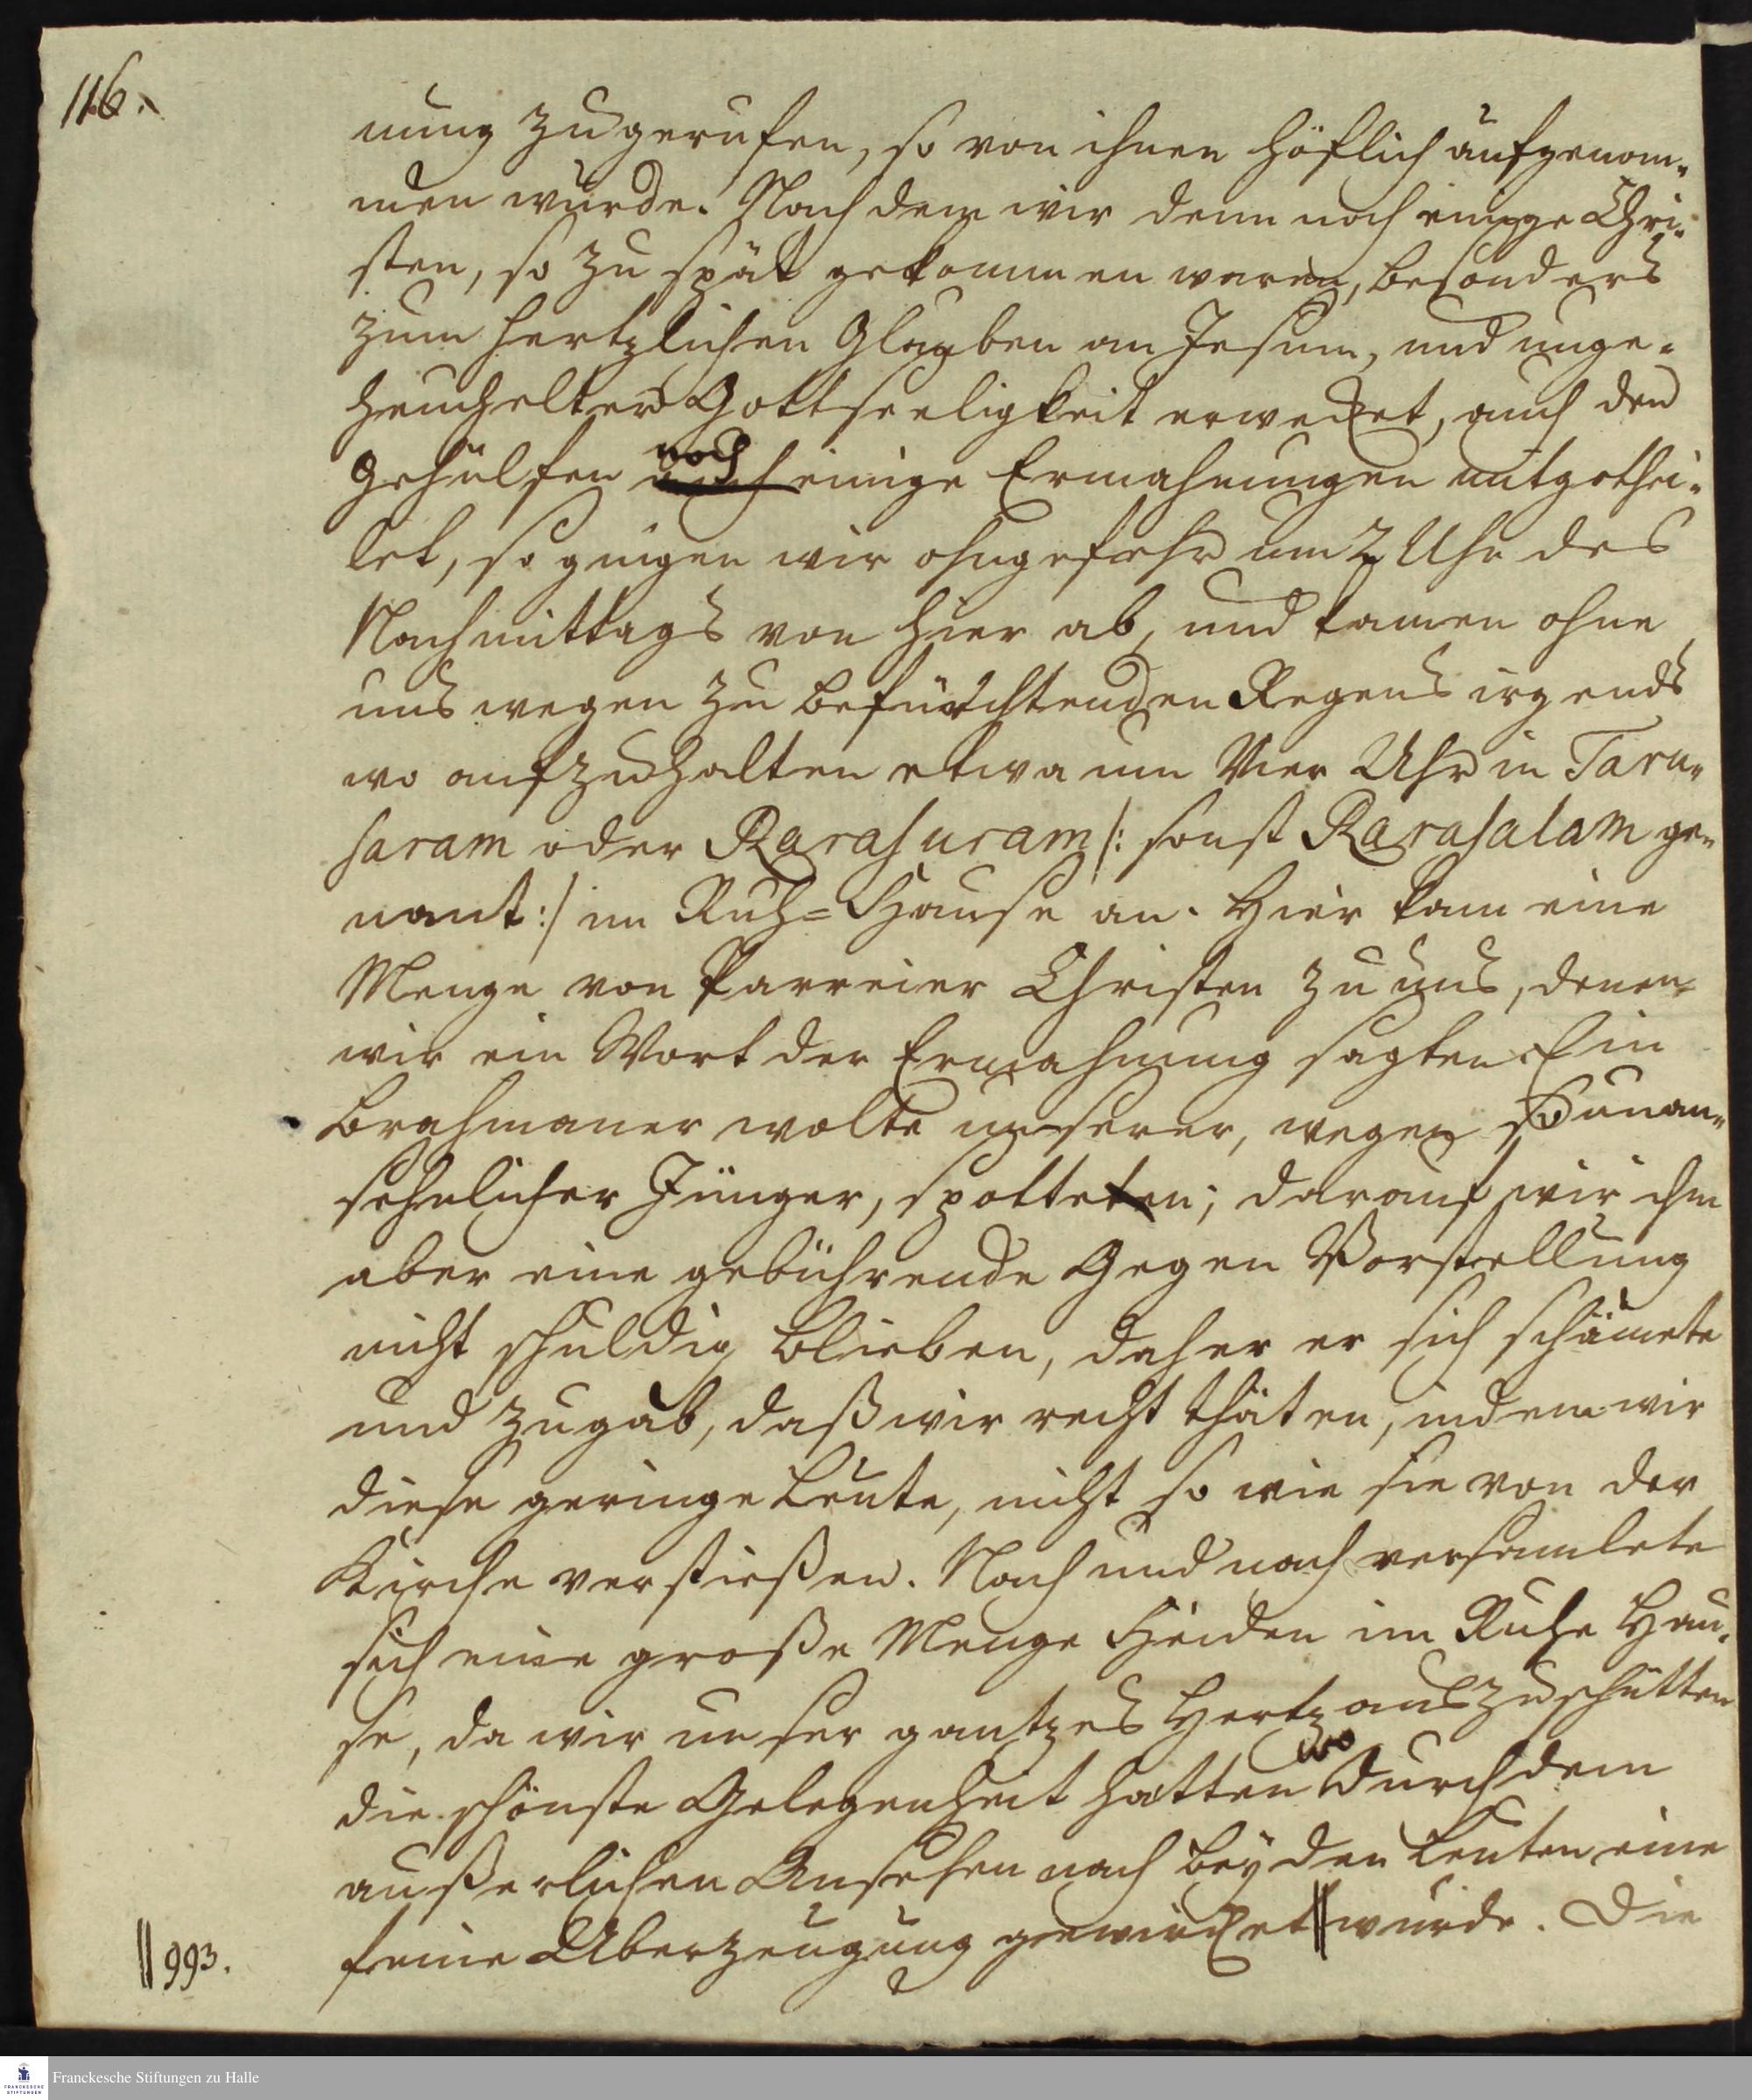 116.
nung zugerufen, so von ihnen höflich aufgenom-
men wurde. Nach dem wir denn noch einige Chri-
sten, so zu spät gekommen waren, besonders
zum hertzlichen Glauben an Jesum, und unge-
heuchelter Gottseeligkeit erwecket, auch den
Gehülfen noch einige Ermahnungen mitgethei-
let, so gingen wir ohngefehr um 2 Uhr des
Nachmittags von hier ab, und kamen ohne
uns wegen zu befürchtenden Regens irgends
wo aufzuhalten etwa um Vier Uhr in Taru-
saram oder Rarasuram /: sonst Rarasalam ge-
nant :/ im Ruh-Hause an. Hier kam eine
Menge von Parreier Christen zu uns, denen
wir ein Wort der Ermahnung sagten. Ein
Brahmaner wolte unserer, wegen so unan-
sehnlicher Jünger, spotten; darauf wir ihm
aber eine gebührende Gegen Vorstellung
nicht schuldig blieben, daher er sich schämete
und zugab, daß wir recht thäten, indem wir
diese geringe Leute, nicht so wie sie von der
Kirche verstießen. Nach und nach versamlete
sich eine große Menge Heiden im Ruhe Hau-
se, da wir unser gantzes Hertz auszuschütten
die schönste Gelegenheit hatten wo durch dem
außerlichen Ansehen nach bey den Leuten eine
feine Überzeugung gewircket || wurde. Die
|| 993.
Franckesche Stiftungen zu Halle